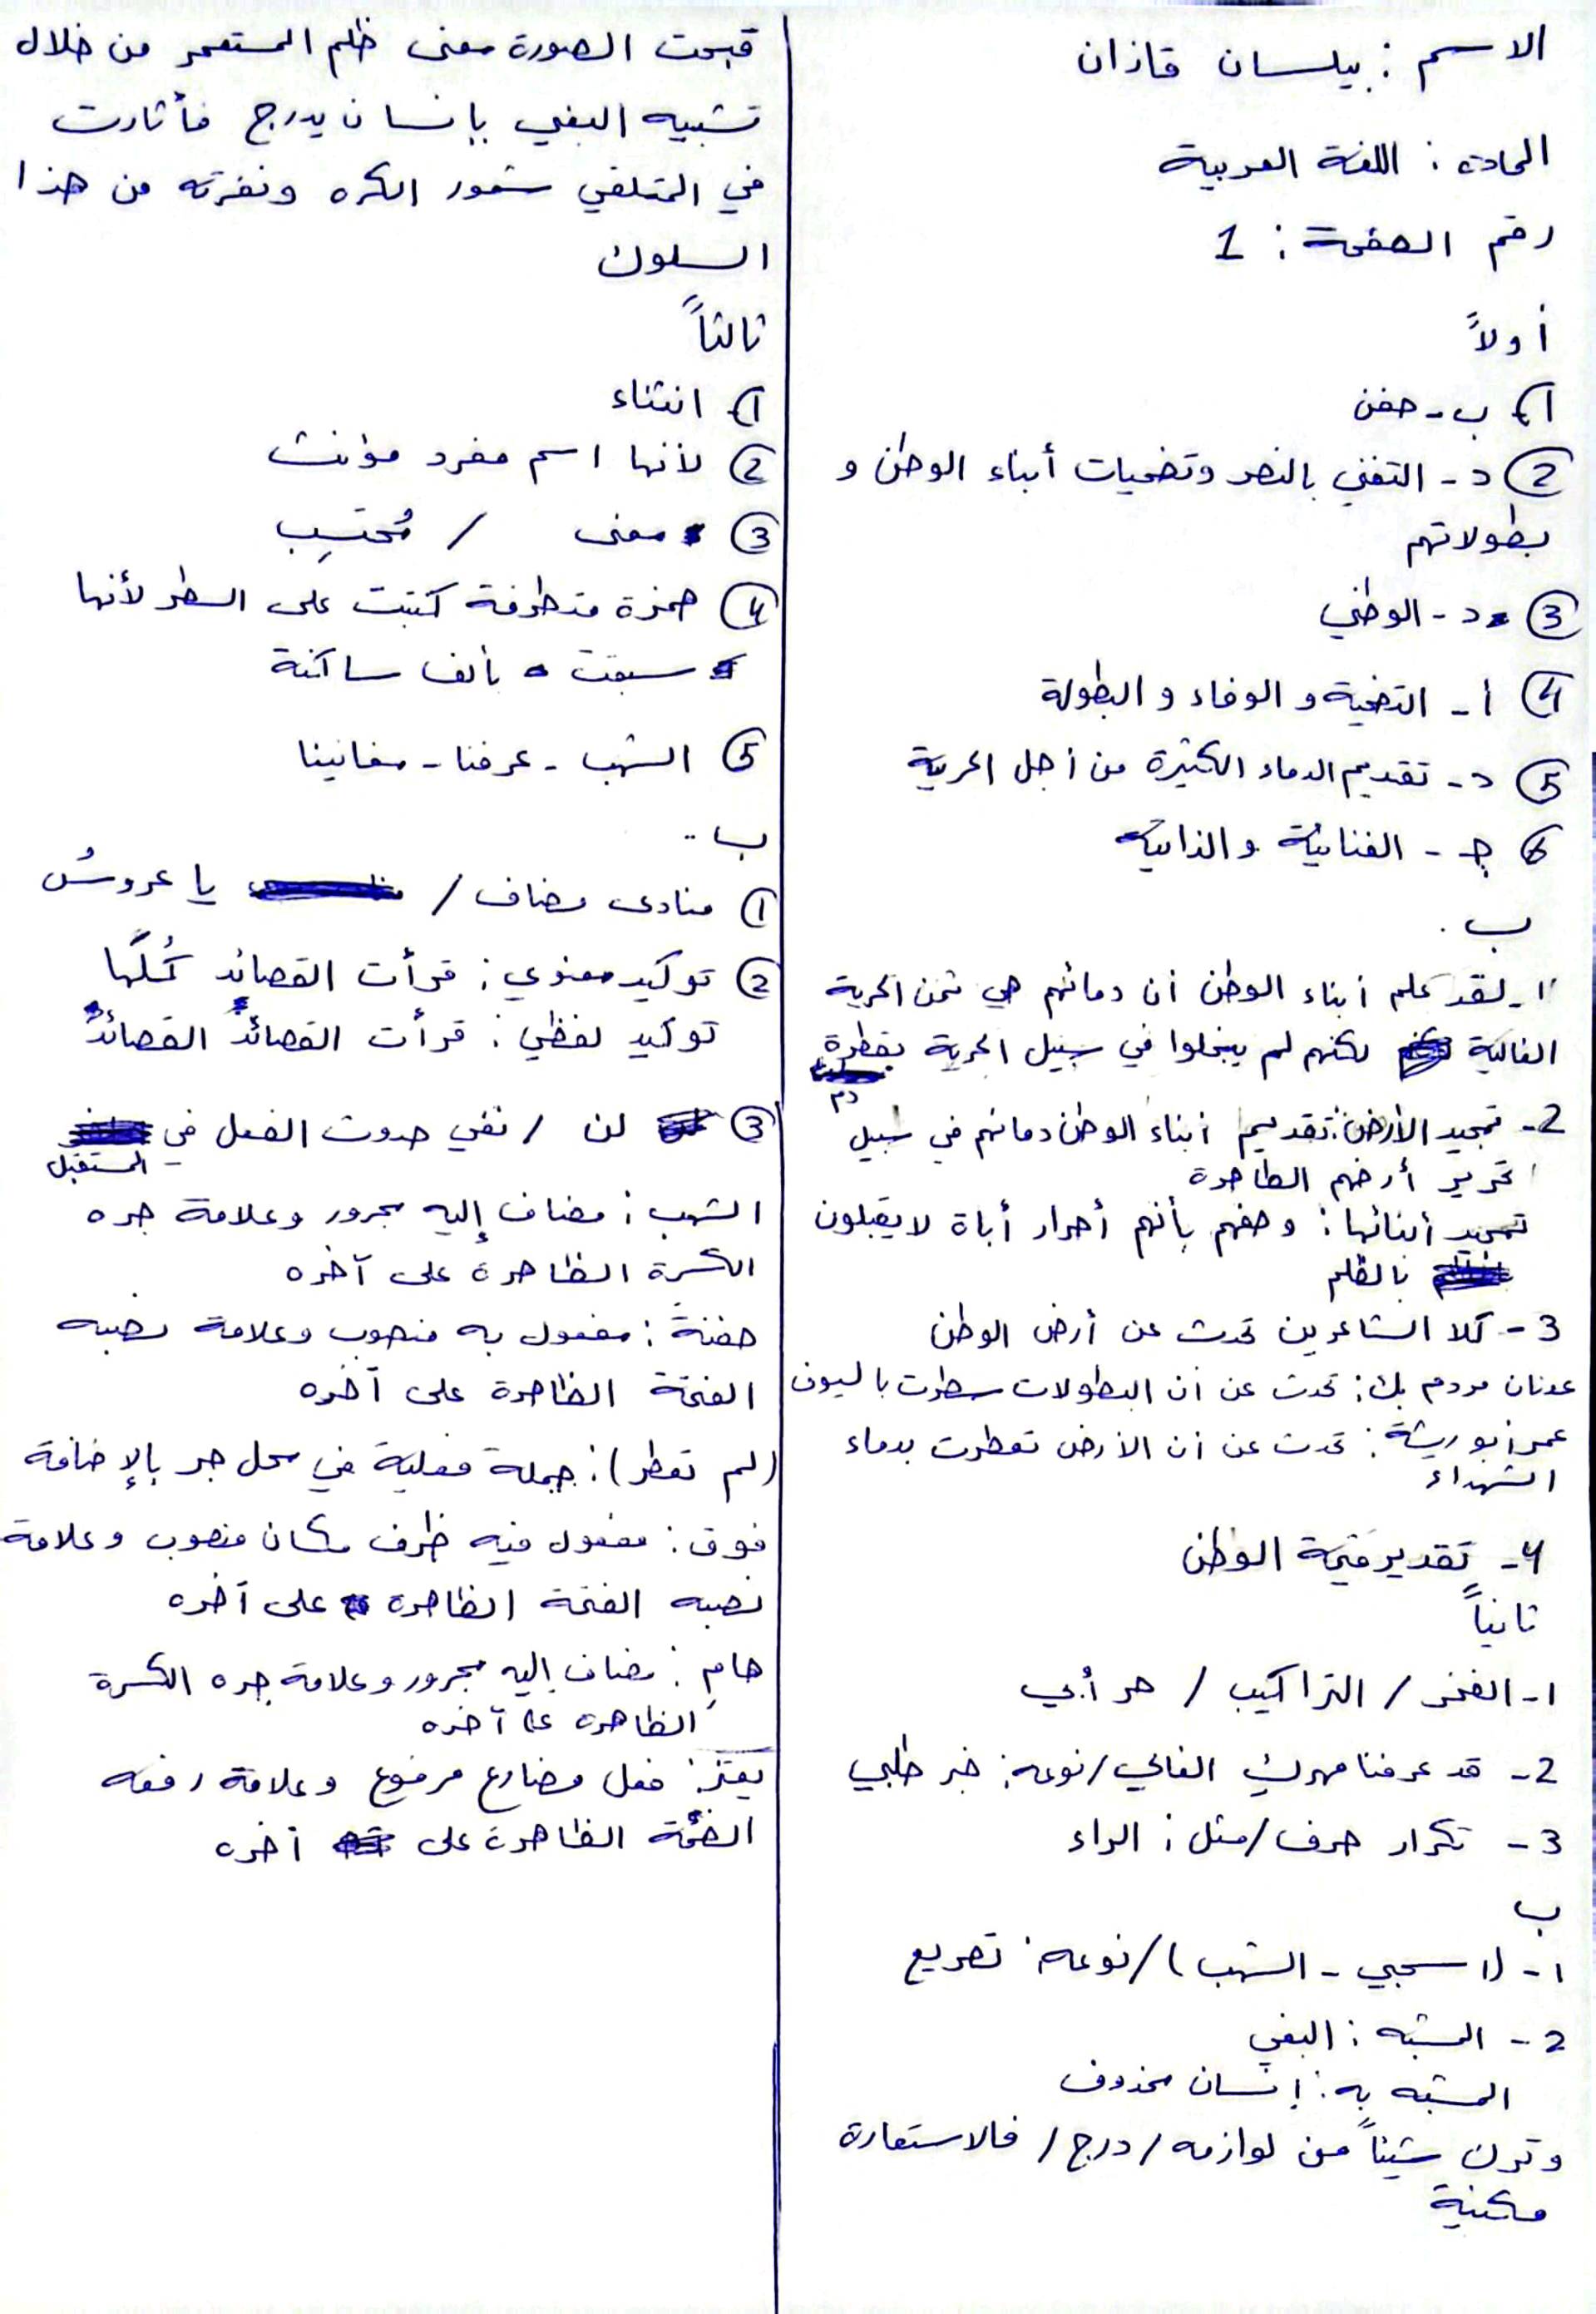 الاسم : بيلسان قازان
المادة : اللغة العربية
رقم الصفحة : 1
أولاً
1) ب - حفن
2) د - التغني بالنصر وتضحيات أبناء الوطن و
بطولاتهم
3) د - الوطني
4) أ - التضحية و الوفاء و البطولة
5) د - تقديم الدماء الكثيرة من أجل الحرية
6) جـ - الغنائيّة والذاتيّة
ب .
1 - لقد علم أبناء الوطن أن دمائهم هي ثمن الحرية
الغالية لكنهم لم يبخلوا في سبيل الحرية بقطرة
دم
2 - تمجيد الأرض : تقديم أبناء الوطن دمائهم في سبيل
تحرير أرضهم الطاهرة
تمجيد أبنائها : وصفهم بأنهم أحرار أباة لا يقبلون
بالظلم
3 - كلا الشاعرين تحدث عن أرض الوطن
عدنان مردم بك : تحدث عن أن البطولات سطرت باليون
عمر أبو ريشة : تحدث عن أن الأرض تعطرت بدماء
الشهداء
4 - تقدير قيمة الوطن
ثانياً
1 - الفخر / التراكيب / حر أُبي
2 - قد عرفنا مهرك الغالي / نوعه : خبر طلبي
3 - تكرار حرف / مثل : الراء
ب
1 - (اسحبي - الشهب) / نوعه : تصريع
2 - المشبّه : البغي
المشبّه به : إنسان محذوف
وترك شيئاً من لوازمه / درج / فالاستعارة
مكنية
قبحت الصورة معنى ظلم المستعمر من خلال
تشبيه البغي بإنسان يدرج فأثارت
في المتلقي شعور الكره ونفرته من هذا
السلوك
ثالثاً
1) انتثاء
2) لأنها اسم مفرد مؤنث
3) معنى / مُحتسِب
4) همزة متطرفة كتبت على السطر لأنها
سبقت بألف ساكنة
5) الشهب - عرفنا - مغانينا
ب ..
1) منادى مضاف / يا عروسُ
2) توكيد معنوي : قرأت القصائد كُلَّها
توكيد لفظي : قرأت القصائدَ القصائدَ
3) لن / نفي حدوث الفعل في
المستقبل
الشهب : مضاف إليه مجرور وعلامة جره
الكسرة الظاهرة على آخره
حفنةً : مفعول به منصوب وعلامة نصبه
الفتحة الظاهرة على آخره
(لم تعطر) : جملة فعلية في محل جر بالإضافة
فوق : مفعول فيه ظرف مكان منصوب وعلامة
نصبه الفتحة الظاهرة على آخره
هامِ : مضاف إليه مجرور وعلامة جره الكسرة
الظاهرة على آخره
يعتز : فعل مضارع مرفوع وعلامة رفعه
الضمّة الظاهرة على آخره